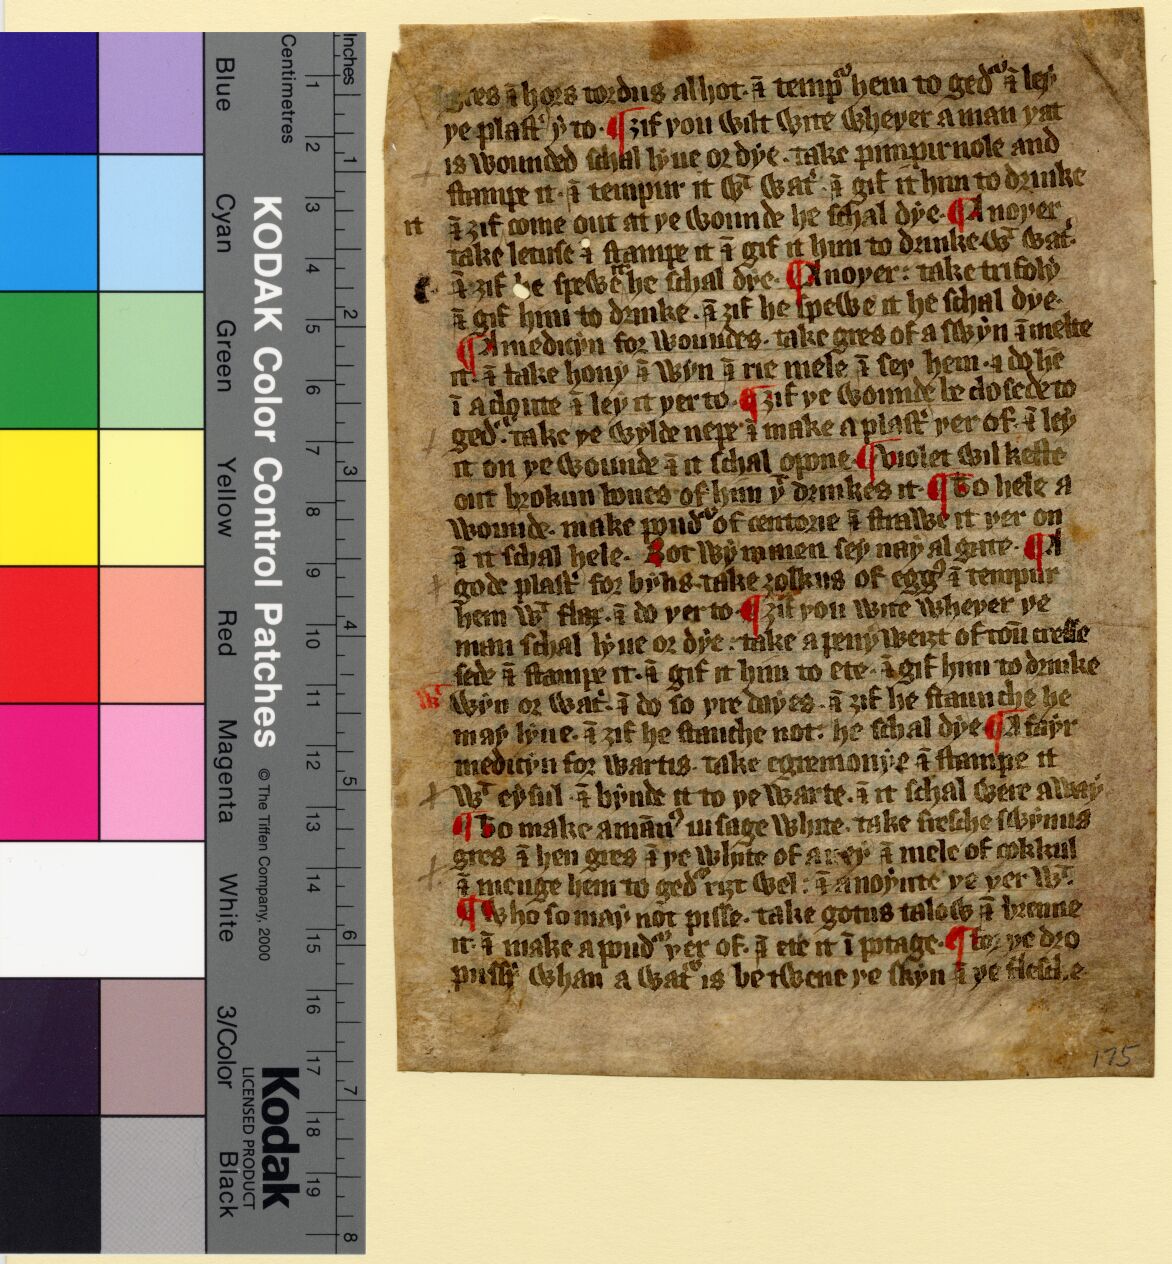 hors tordus al hot · ⁊ temp hem to ged ⁊ ley
ye plast y to · ¶ ȝif you wilt wite wheyer a man yat
is wounded schal lyue or dye · take pimpirnole and
stampe it · ⁊ tempur it wt wat · ⁊ gif it him to drinke
it
⁊ ȝif come out at ye wounde he schal dye · ¶ Anoyer
take letuse ⁊ stampe it ⁊ gif it him to drinke wt wat ·
⁊ ȝif he spewe he schal dye · ¶ Anoyer : take trifoly
⁊ gif him to drinke · ⁊ ȝif he spewe it he schal dye ·
¶ A medicyn for woundes · take gres of a swyn ⁊ melte
it · ⁊ take hony ⁊ wyn ⁊ rie mele ⁊ sey hem · ⁊ do he
ī a cloute ⁊ ley it yer to · ¶ ȝif ye wounde be closede to
ged · take ye wylde nepe ⁊ make a plast yer of · ⁊ ley
it on ye wounde ⁊ it schal opone · ¶ violet wil keste
out brokun bones of him y drinkes it · ¶ To hele a
wounde · make pud of centorie ⁊ strawe it yer on
⁊ it schal hele · Bot wymmen sey nay al gate · ¶ A
gode plast for byns · take ȝolkus of egg ⁊ tempur
hem wt flax · ⁊ do yer to · ¶ ȝif you wite wheyer ye
man schal lyue or dye : take a peny weiȝt of toū cresse
sede ⁊ stampe it · ⁊ gif it him to ete · ⁊ gif him to drinke
wt
wyn or wat · ⁊ do so yre dayes · ⁊ ȝif he staunche he
may lyue · ⁊ ȝif he stauche not : he schal dye ¶ A fayr
medicyn for wartis · take egremonye ⁊ stampe it
wt eysul · ⁊ bynde it to ye warte · ⁊ it schal were away
¶ To make a man uisage white · take fresche swynus
gres ⁊ hen gres ⁊ ye whyte of a ney ⁊ mele of cokkul
⁊ menge hem to ged riȝt wel : ⁊ anoynte ye yer wt ·
¶ Who so may not pisse · take gotus talow ⁊ brenne
it · ⁊ make a pud yer of · ⁊ ete it ī potage · ¶ for ye dro
whan a wat is be twene ye skyn ⁊ ye flesche
175
Blue
Cyan
Green
Yellow
Red
Magenta
White
3/Color
Black
KODAK Color Control Patches
© The Tiffen Company, 2000
Kodak
LICENSED PRODUCT
Centimetres
1 2 3 4 5 6 7 8 9 10 11 12 13 14 15 16 17 18 19
Inches
1 2 3 4 5 6 7 8